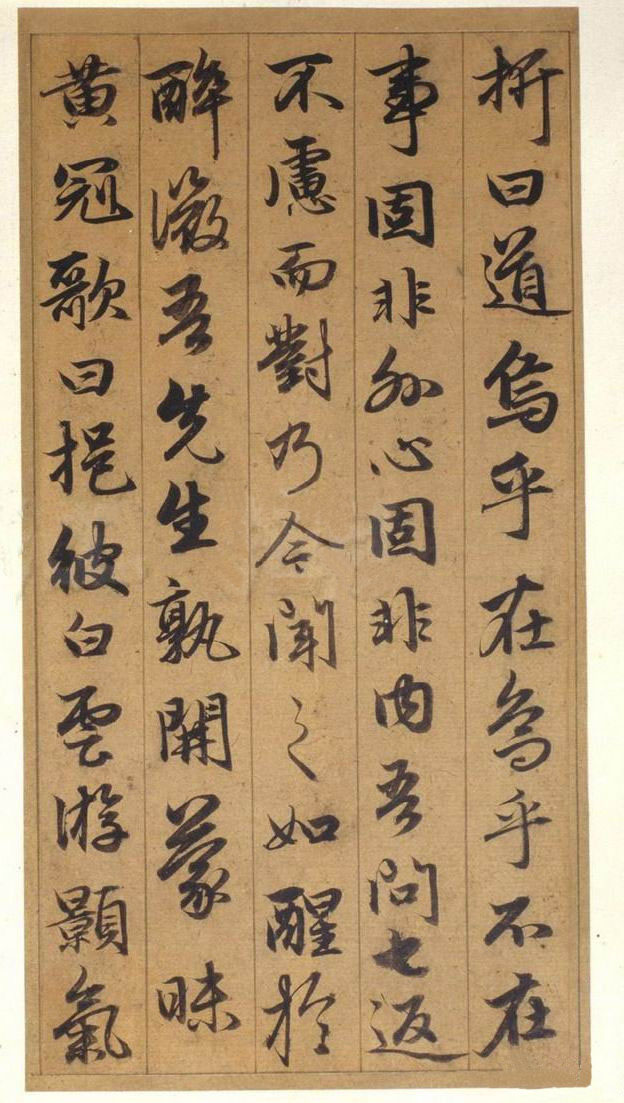 折曰道烏乎在烏乎不在
事固非外心固非内吾問七返
不慮而對乃今聞之如醒於
醉微吾先生孰開蒙昧
黄冠歌曰挹彼白雲游顥氣